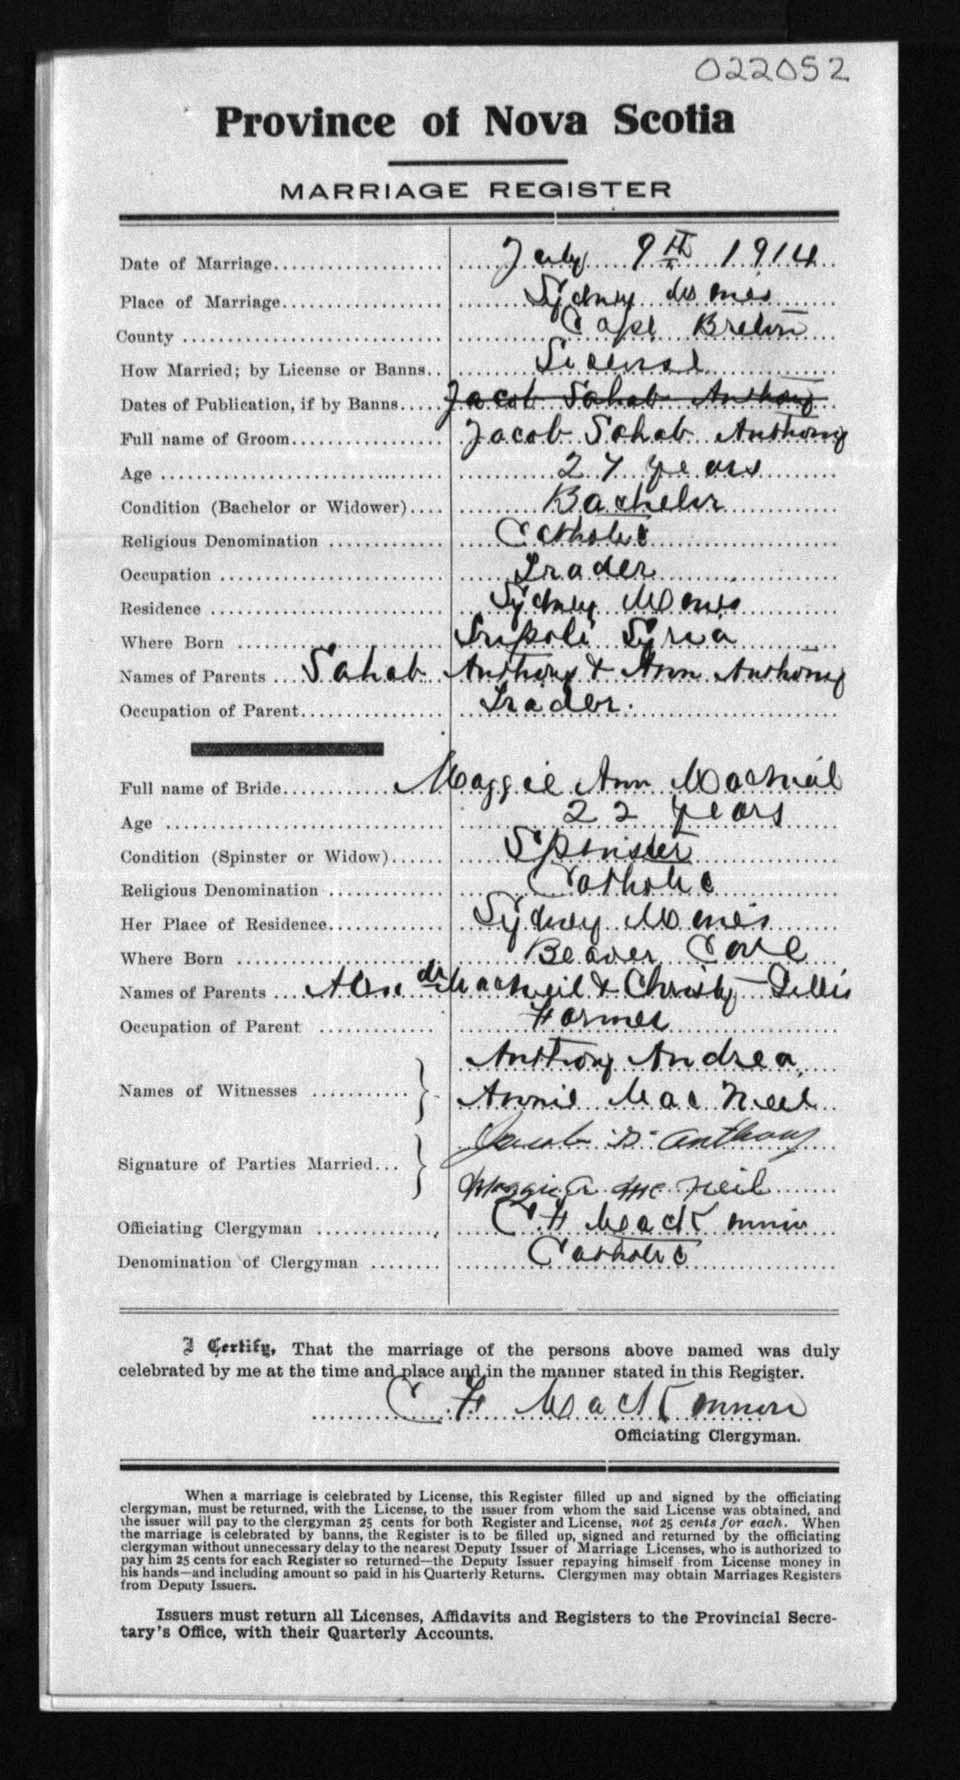 022052
Province of Nova Scotia
MARRIAGE REGISTER
Date of Marriage July 9th 1914
Place of Marriage Sydney Mines
County Cape Breton
How Married; by License or Banns License
Dates of Publication, if by Banns Jacob Sahab Anthony
Full name of Groom Jacob Sahab Anthony
Age 27 years
Condition (Bachelor or Widower) Bachelor
Religious Denomination Catholic
Occupation Trader
Residence Sydney Mines
Where Born Tripoli Syria
Names of Parents Sahab Anthony & Ann Anthony
Occupation of Parent Trader
Full name of Bride Maggie Ann MacNeil
Age 22 years
Condition (Spinster or Widow) Spinster
Religious Denomination Catholic
Her Place of Residence Sydney Mines
Where Born Beaver Cove
Names of Parents Alexdr MacNeil & Christy Gillis
Occupation of Parent Farmer
Names of Witnesses Anthony Andrea
Annie MacNeil
Signature of Parties Married Jacob S Anthony
Maggie A Mc Neil
Officiating Clergyman C F MacKinnon
Denomination of Clergyman Catholic
I Certify, That the marriage of the persons above named was duly
celebrated by me at the time and place and in the manner stated in this Register.
C F MacKinnon
Officiating Clergyman.
When a marriage is celebrated by License, this Register filled up and signed by the officiating
clergyman, must be returned, with the License, to the issuer from whom the said License was obtained, and
the issuer will pay to the clergyman 25 cents for both Register and License, not 25 cents for each. When
the marriage is celebrated by banns, the Register is to be filled up, signed and returned by the officiating
clergyman without unnecessary delay to the nearest Deputy Issuer of Marriage Licenses, who is authorized to
pay him 25 cents for each Register so returned—the Deputy Issuer repaying himself from License money in
his hands—and including amount so paid in his Quarterly Returns. Clergymen may obtain Marriages Registers
from Deputy Issuers.
Issuers must return all Licenses, Affidavits and Registers to the Provincial Secre-
tary's Office, with their Quarterly Accounts.